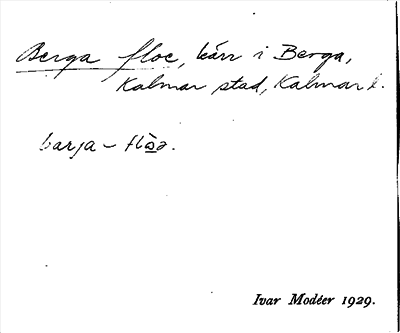 Berga floe, kärr i Berga,
Kalmar stad, Kalmar l.
barja – flòə.
Ivar Modéer 1929.